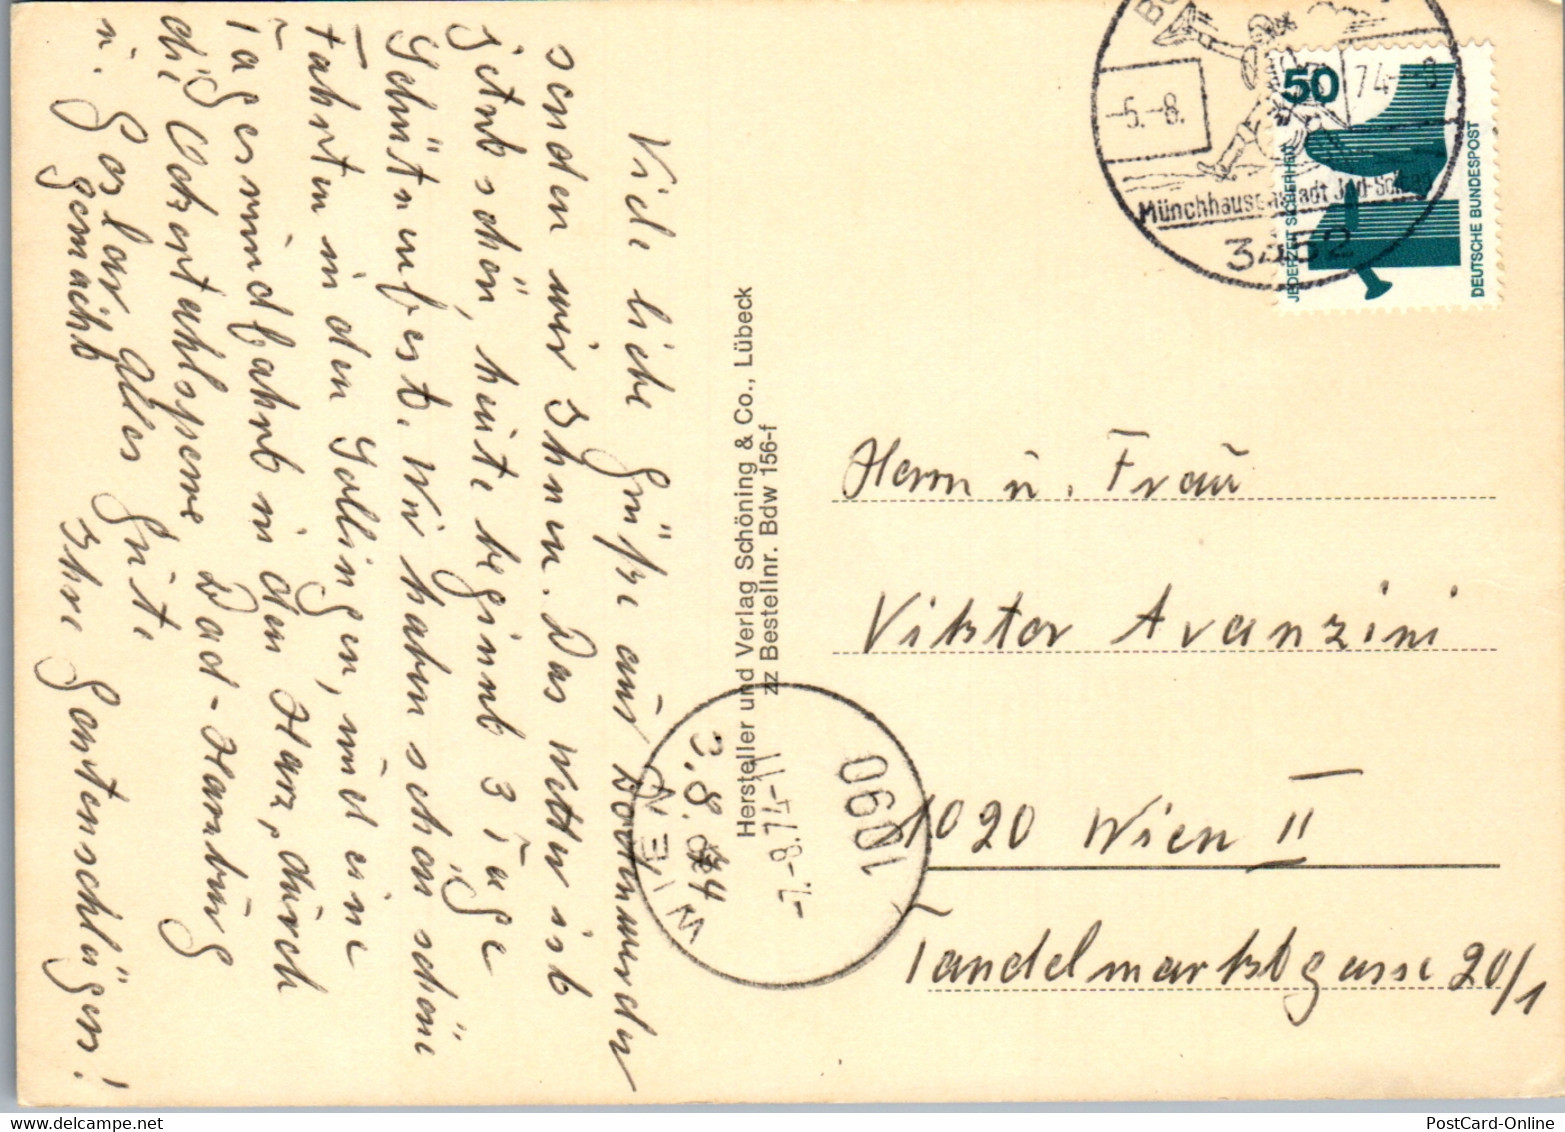 Viele liebe Grüße aus Bodenwerder
senden wir Ihnen. Das Wetter ist
jetzt schön, heute beginnt 3 Tage
Schützenfest. Wir haben schon schöne
Fahrten in den Solling, und eine
Tagesrundfahrt in den Harz, durch
die Okertahlsperre Bad-Harzburg
u. Goslar
gemacht
Alles Gute
Ihre Gartenschläger!
3.8.74
Hersteller und Verlag Schöning & Co., Lübeck
zz Bestellnr. Bdw 156-f
1090
-7.-8.74-11
WIEN
-5.-8.
74--9
Münchhausenstadt
3452
50
JEDERZEIT SICHERHEIT
DEUTSCHE BUNDESPOST
Herrn u. Frau
Viktor Avanzini
1020 Wien II
Tandelmarktgasse 20/1
PostCard-Online